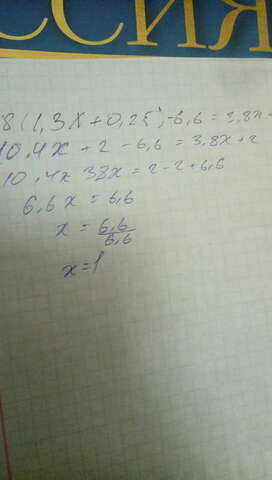 ССИЯ
8(1,3x+0,25)-6,6=3,8x+
10,4x+2-6,6=3,8x+2
10,4x 38x=2-2+6,6
6,6x=6,6
x=6,6/6,6
x=1